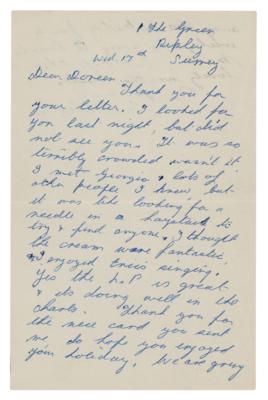 1 The Green
Ripley
Wed. 17th Surrey
Dear Doreen
Thank you for
your letter. I looked for
you last night, but did
not see you. It was so
terribly crowded wasn't it
I met Georgia & lots of
other people I knew but
it was like looking for a
needle in a haystack to
try & find anyone. I thought
the cream were fantastic
& I enjoyed Eric's singing.
Yes the L.P is great
& its doing well in the
charts. Thank you for
the nice card you sent
me, do hope you enjoyed
your holiday. We are going